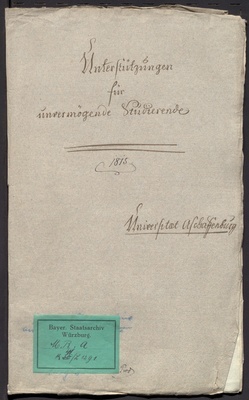 Unterstützungen
für
unvermögende Studierende
1815
Universitæt Aschaffenburg
Bayer. Staatsarchiv
Würzburg
M R A